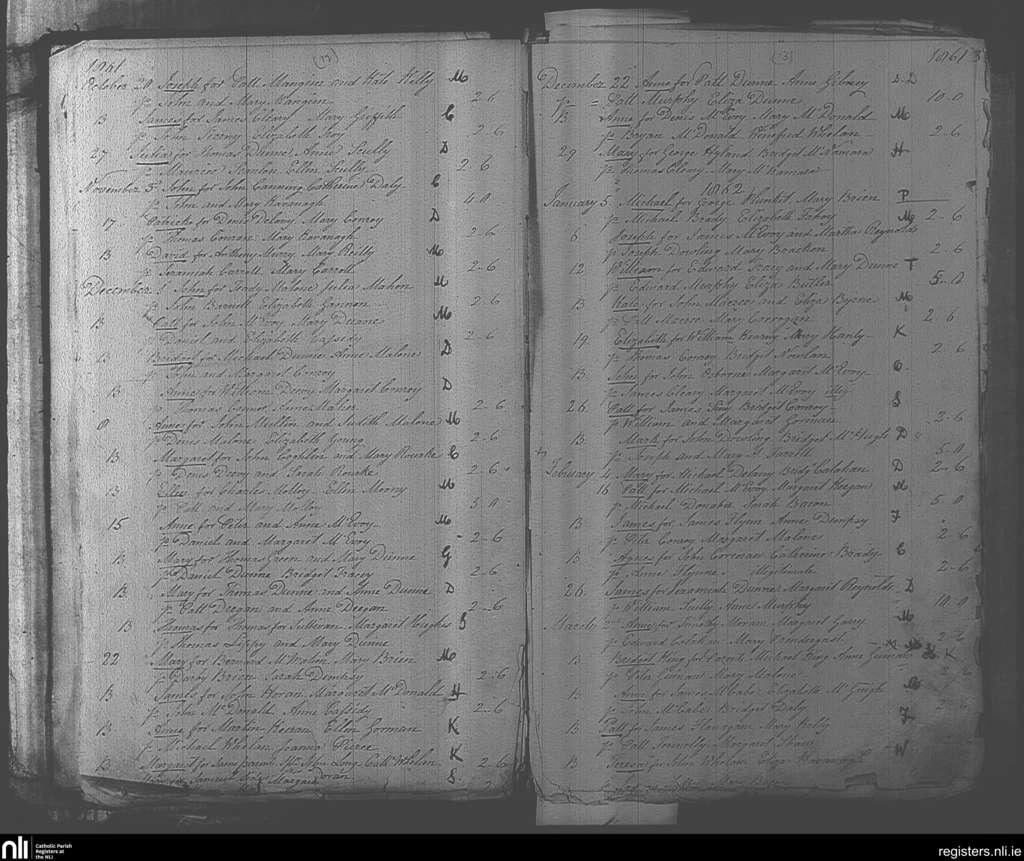 1861 (17)
October 20 Joseph for Patt Mangine and Kate Kelly M
ps John and Mary Bargin 2-6
B James for James Cleary Mary Griffith C
ps John Elizabeth 2-6
27 Julia for Thomas Dunne Anne Scully D
ps Maurice Scanlon Ellen Scully 2-6
November 3 John for John Canning Catherine Daly C
ps John and Mary Kavanagh 4-0
17 Patrick for Denis Delany Mary Conroy D
ps Thomas Conran Mary Kavanagh 2-6
B David for Anthony Murry Mary Reilly M
ps Jeremiah Carroll Mary Carroll 2-6
December 1 John for Thady Malone Julia Mahon M
ps John Barrett Elizabeth Gannon 2-6
B Kate for John McEvoy Mary Dunne M
ps Daniel and Elizabeth Cassidy 2-6
B Bridget for Michael Dunne Anne Malone D
ps John and Margaret Conroy
B Anne for William Deeny Margaret Conroy D
ps Thomas Connor Anne Maher 2-6
8 Agnes for John Melton and Judith Malone M
ps Denis Malone Elizabeth Young 2-6
B Margaret for John Coghlan and Mary Rourke C
ps Denis Deery and Sarah Rourke 2-6
B Ellen for Charles Molloy Ellen Moony M
ps Patt and Mary Molloy 5-0
15 Anne for Peter and Anne McEvoy M
ps Daniel and Margaret McEvoy 2-6
B Mary for Thomas Green and Mary Dunne G
ps Daniel Dunne Bridget Tracey 2-6
B Mary for Thomas Dunne and Anne Dunne D
ps Patt Deegan and Anne Deegan 2-6
B Thomas for Thomas Sullivan Margaret Heighes S
ps Thomas Lippy and Mary Dunne
22 Mary for Bernard McMahon Mary Brien M
ps Darby Brien Sarah Dempsey 2-6
B James for John Horan Margaret McDonald H
ps John McDonald Anne Cassidy 2-6
B Anne for Martin Keenan Ellen Gorman K
ps Michael Whelan Joanna Pierce
B Margaret for same parents Sps John Long Cath Whelan K 2-6
S
(18) 1861
December 22 Anne for Patt Dunne Anne Gibney D
ps Patt Murphy Eliza Dunne 10-0
B Anne for Denis McEvoy Mary McDonald M
ps Bryan McDonald Winifred Whelan 2-6
29 Mary for George Hyland Bridget McNamara H
ps Thomas Cleary Mary McNamara
1862
January 5 Michael for George Plunkit Mary Brien P
ps Michael Brady Elizabeth Fahey 2-6
6 Joseph for James McEvoy and Martha Reynolds M
ps Joseph Dowling Mary Bracken 2-6
12 William for Edward Tracy and Mary Dunne T
ps Edward Murphy Eliza Butler 5-0
B Kate for John Moore and Eliza Byrne M
ps Patt Moore Mary Corrogan 2-6
19 Elizabeth for William Kearny Mary Hanly K
ps Thomas Conroy Bridget Nowlan 2-6
B John for John Osborne Margaret McEvoy O
ps James Cleary Margaret McEvoy illy
26 Patt for James Bridget Conroy S
ps William and Margaret Gorman 2-6
B Mark for John Dowling Bridget McHugh D
ps Joseph and Mary Farrell 5-0
February 4 Mary for Michael Delany Bridg Calahan D 2-6
16 Patt for Michael McEvoy Margaret Keegan M
ps Michael Donaher Sarah Bacon 5-0
B James for James Flynn Anne Dempsy F
ps Peter Conroy Margaret Malone 2-6
B Agnes for John Corcoran Catherine Brady C
ps Anne Flynne illegitimate 2-6
26 James for Jeremiah Dunne Margaret Reynolds D
ps William Tully Anne Murphy 10-0
March 2 Anne for Timothy Moran Margaret Garry M
ps Edward Calahan Mary Prendergast 2-6
B Bridget King for Parents Michael King Anne Guinan K
ps Peter Guinan Mary Malone 2-6
B Anne for James McCabe Elizabeth McGough M
ps John McCabe Bridget Daly 2-6
B Patt for James Flanigan Mary Kelly F
ps Patt Connolly Margaret
B Teresa for John Whelan Eliza Kavanagh W
nli Catholic Parish
Registers at
the NLI
registers.nli.ie